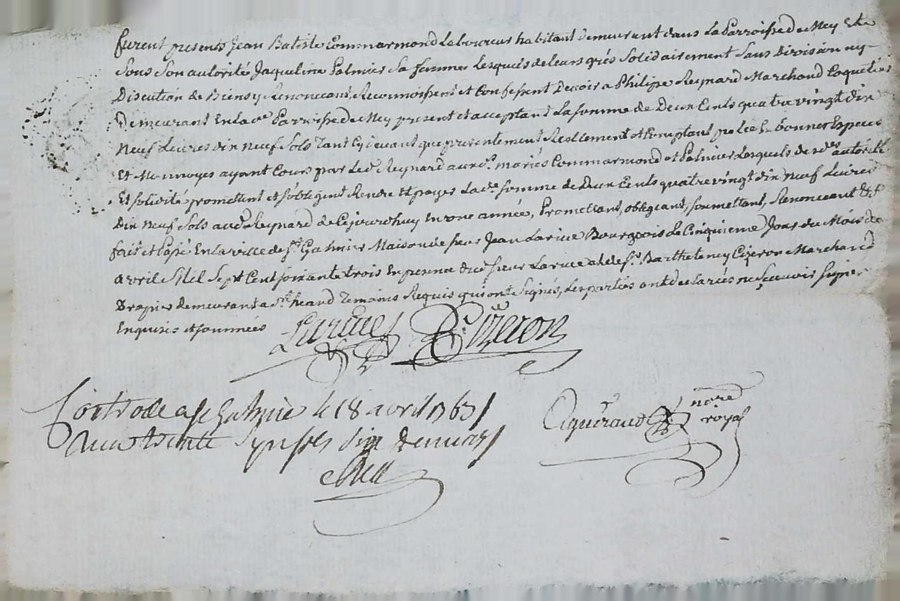 furent presents Jean Batiste Commarmond Laboureur habitant demeurant dans La Parroisse de Mey & de
Sous Son autorité Jaqueline Palmier Sa femme Lesquels de Leurs grés Solidairement Sans Division ny
Discution de Biens y Renonceant Reconnoissent et Confessent Devoir a Philipe Reynard Marchand Coquetier
Demeurant En La de Parroisse de Mey present et acceptant La somme de Deux Cents quatre vingt dix
Neuf Livres dix neuf Sols Tant Cy devant que presentement Reellement et Comptant payée En bonnes Especes
Et Monnoyes ayant Cours par Led. Reynard aux d. mariés Commarmond et Palmier Lesquels de autorité
Et solidité promettent et s'obligent Rendre et payer La de somme de Deux Cents quatre vingt dix neuf Livres
Dix Neuf Sols aud. Reynard de Cejourdhuy en une année, Promettant, obligeant, soumettant, Renonceant &c
fait et Passé En La ville de St Galmier Maison de sieur Jean Larive Bourgeois Le Cinquieme Jour du Mois de
avril Mil Sept Cent soixante trois En presence dud. sieur Larive et de Sr. Barthelemy Cizeron Marchand
Drapier demeurant a St. heand Temoins Requis qui ont Signés, Les parties ont declarées ne Sçavoir Signer
Enquises et sommées
Larive Cizeron
Controlé a St Galmier le 18 avril 1763
Reçu trente six
nore
royal